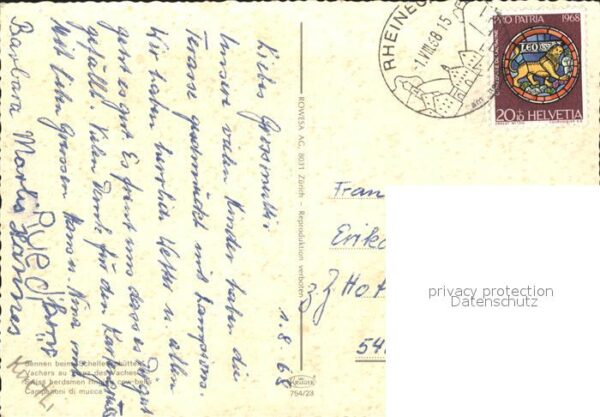 Liebes Grossmutti
Unsere vielen Kinder haben die
Terasse geschmückt mit Lampions.
Wir haben herrlich Wetter u. allen
geht es gut. Es freut uns dass es Dir gut
gefällt. Vielen Dank für den Kartengruss
Mit lieben Grüssen Hans u. Nina und
Barbara Marlis Ruedi
Hannes
1. 8. 68
ROWESA AG, 8031 Zürich - Reproduktion verboten
Sennen beim Schellenschütten
Vachers au
Swiss herdsmen ringing cow-bells
Campanoni di mucca
754/23
RHEINECK
-1.VIII.68-15
PRO PATRIA 1968
LEO
20+10 HELVETIA
Frau
Erika
z. Z. Hot
54
privacy protection
Datenschutz